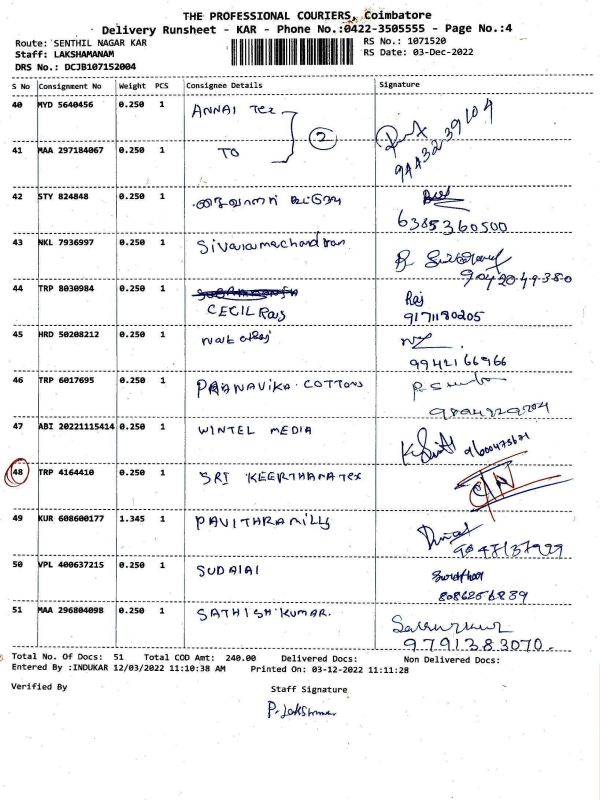 THE PROFESSIONAL COURIERS, Coimbatore
Delivery Runsheet - KAR - Phone No.:0422-3505555 - Page No.:4
Route: SENTHIL NAGAR KAR RS No.: 1071520
Staff: LAKSHAMANAM RS Date: 03-Dec-2022
DRS No.: DCJB107152004
S No Consignment No Weight PCS Consignee Details Signature
40 MYD 5640456 0.250 1 ANNAI Tex
41 MAA 297184067 0.250 1 TO 2 9443239104
42 STY 824848 0.250 1 6385360500
43 NKL 7936997 0.250 1 Sivaramachandran 9042049380
44 TRP 8030984 0.250 1 CECIL Raj Raj 9171180205
45 HRD 50208212 0.250 1 9942166966
46 TRP 6017695 0.250 1 PRANAVIKA COTTONS
47 ABI 20221115414 0.250 1 WINTEL MEDIA 9600475671
48 TRP 4164410 0.250 1 SRI KEERTHANA Tex
49 KUR 608600177 1.345 1 PAVITHRA MILLS
50 VPL 400637215 0.250 1 SUDALAI 8086256839
51 MAA 296804098 0.250 1 SATHISH KUMAR. 9791383070.
Total No. Of Docs: 51 Total COD Amt: 240.00 Delivered Docs: Non Delivered Docs:
Entered By :INDUKAR 12/03/2022 11:10:38 AM Printed On: 03-12-2022 11:11:28
Verified By Staff Signature
P. Lakshmanan